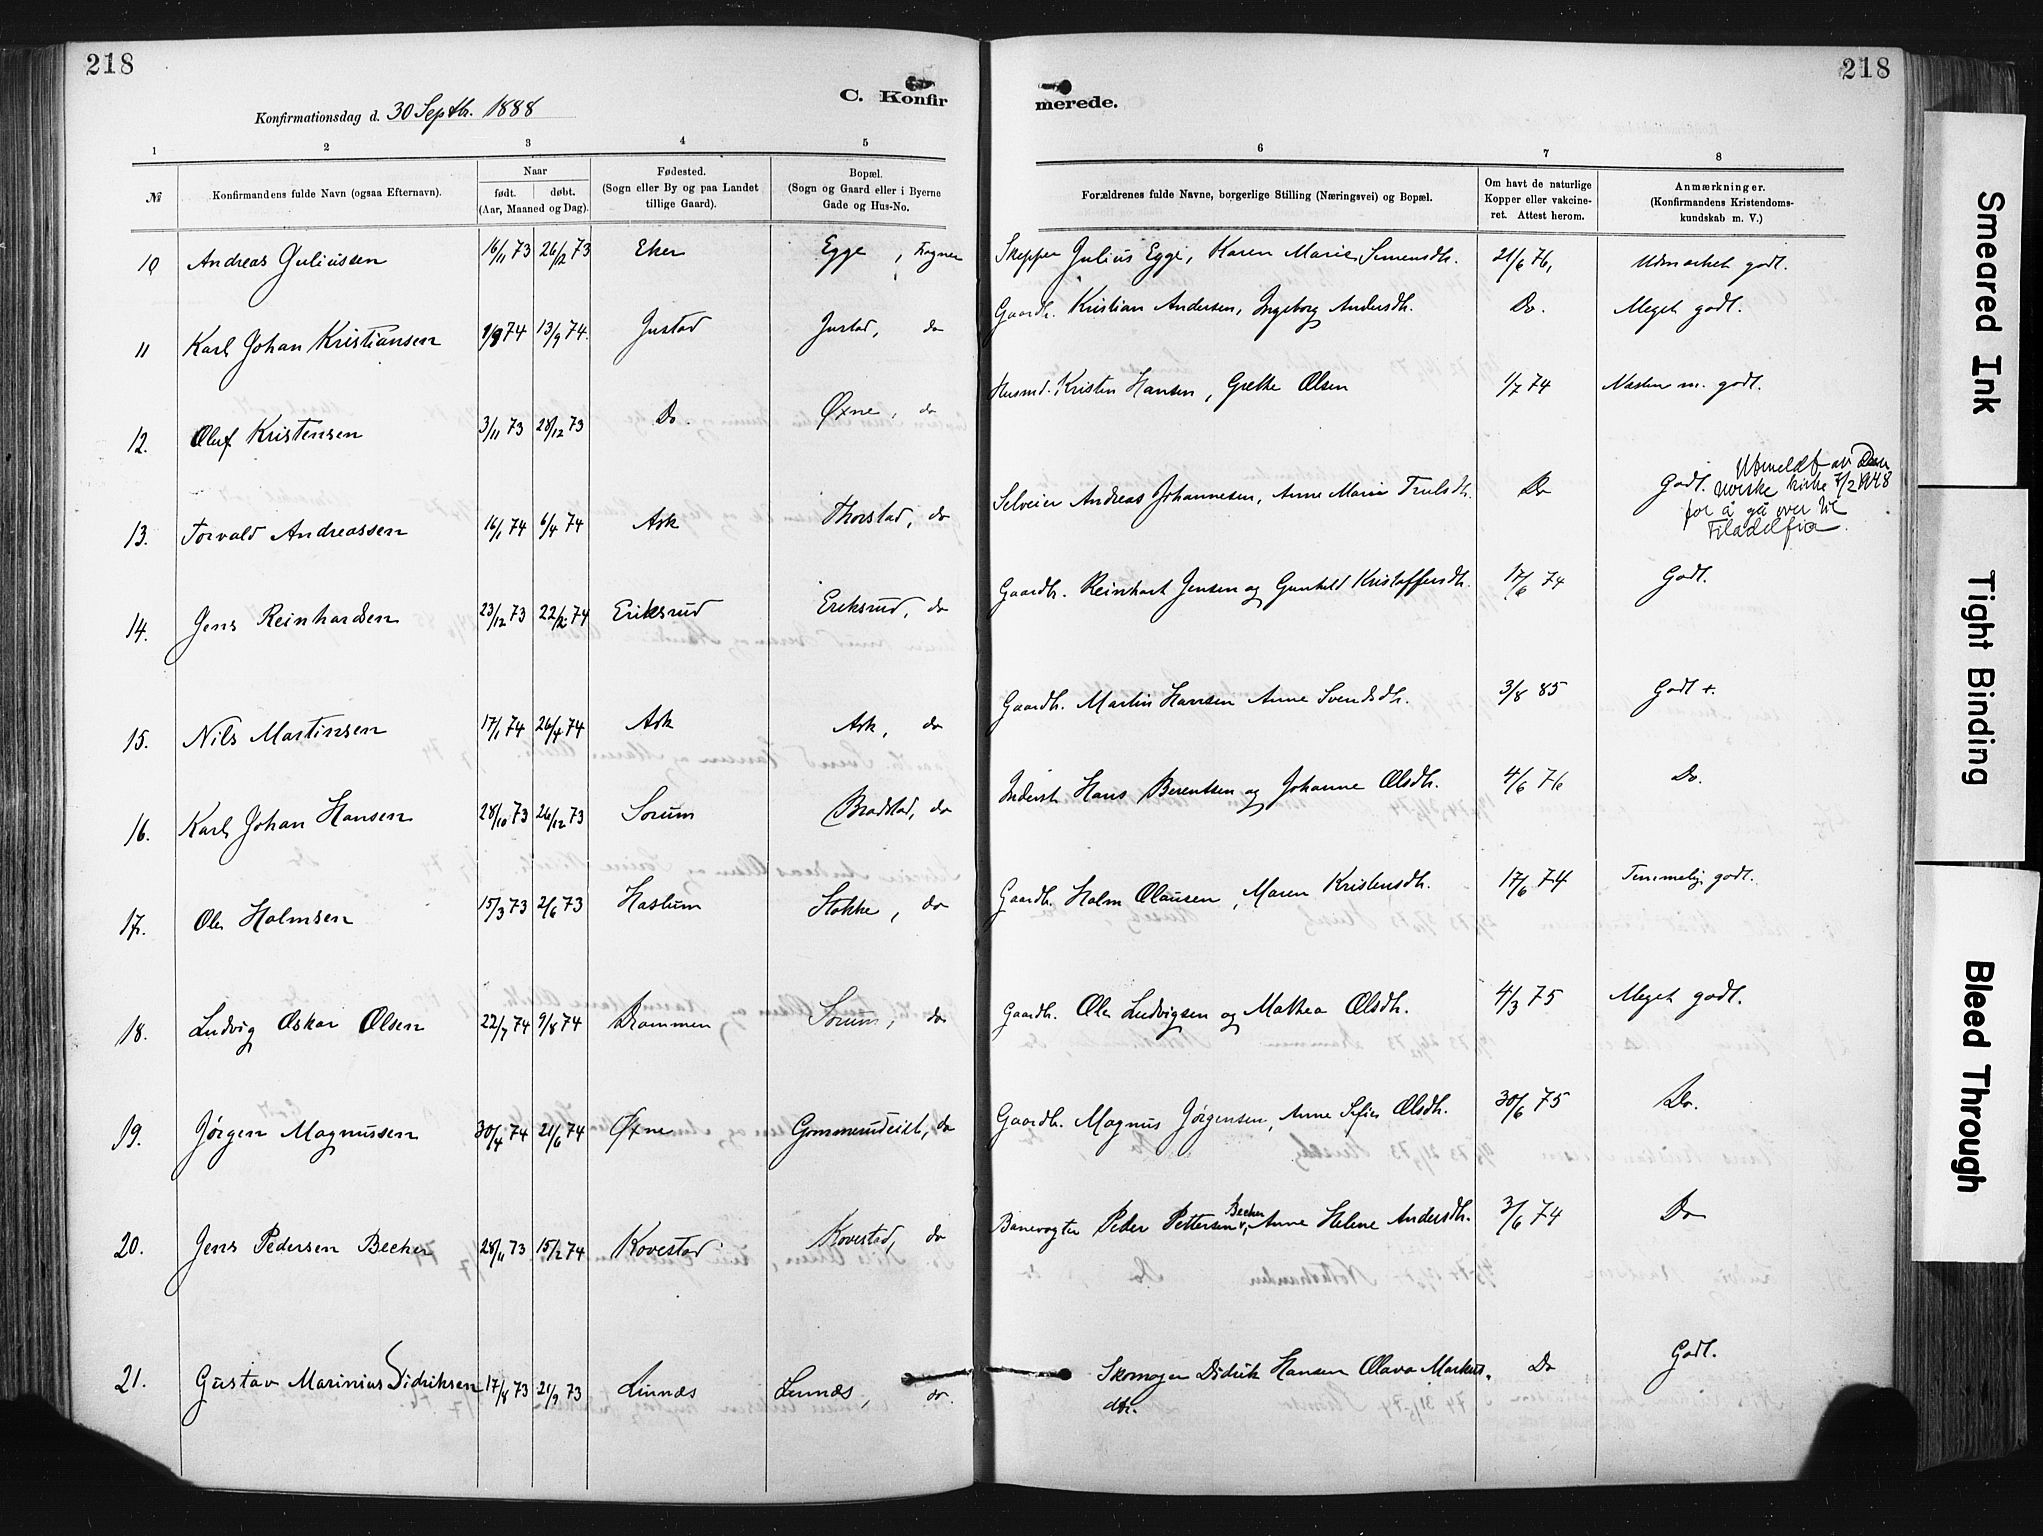 218
C. Konfir
merede.
218
Konfirmationsdag d. 30 Septbr. 1888
1 2 3 4 5 6 7 8
№ Konfirmandens fulde Navn (ogsaa Efternavn).
Naar
født. døbt.
(Aar, Maaned og Dag).
Fødested.
(Sogn eller By og paa Landet
tillige Gaard).
Bopæl.
(Sogn og Gaard eller i Byerne
Gade og Hus-No.
Forældrenes fulde Navne, borgerlige Stilling (Næringsvei) og Bopæl.
Om havt de naturlige
Kopper eller vakcine-
ret. Attest herom.
Anmærkninger.
(Konfirmandens Kristendoms-
kundskab m. V.)
10 Andreas Juliussen 16/11 73 26/12 73 Eker Egge, Tragnes Skepper Julius Egge, Karen Marie Simensdtr. 21/6 76, Udmærket godt.
11 Karl Johan Kristiansen 1/8 74 13/9 74. Justad Justad, do Gaardb. Kristian Andersen, Ingeborg Andersdtr. Do. Meget godt.
12. Oluf Kristensen 3/11 73 28/12 73 Do. Øxne, do Husmd. Kristen Hansen, Grethe Olsen 1/7 74 Næsten m. godt.
13. Torvald Andreassen 16/1 74 6/4 74 Ask Thorstad, do Selveier Andreas Johannesen, Anne Marie Trulsdtr. Do Godt. Utmeldt av Den
norske kirke 7/2 1948
for å gå over til
Filadelfia.
14. Jens Reinhardsen 23/12 73 22/2 74 Eriksrud Eriksrud, do Gaardb. Reinhart Jensen og Gunhild Kristoffersdtr. 17/6 74 Godt.
15. Nils Martinsen 17/1 74 26/4 74 Ask Ask, do Gaardb. Martin Hansen Anne Svendsdtr. 3/8 85 Godt +.
16. Karl Johan Hansen 28/10 73 26/12 73 Sorum Bradstad, do Inderst Hans Berentsen og Johanne Olsdtr. 4/6 76 Do.
17. Ole Holmsen 15/3 73 2/6 73 Haslum Stokke, do Gaardb. Holm Olausen, Maren Kristensdtr. 17/6 74 Temmelig godt.
18. Ludvig Oskar Olsen 22/7 74 9/8 74 Drammen Sorum, do Gaardb. Ole Ludvigsen og Mathea Olsdtr. 4/3 75 Meget godt.
19. Jørgen Magnussen 30/4 74 21/6 74 Øxne Gommerudeiet, do Gaardb. Magnus Jørgensen, Anne Sefie Olsdtr. 30/6 75 Do.
20. Jens Pedersen Becker 28/11 73 15/2 74 Kovestad Kovestad, do Banevogter Peder Pettersen Becker, Anne Helene Andersdtr. 3/6 74 Do
21. Gustav Marinius Didriksen 17/8 73 21/9 73 Linnæs Linnæs, do. Skomager Didrik Hansen Olava Markus-
dtr. Do Godt.
Smeared Ink
Tight Binding
Bleed Through